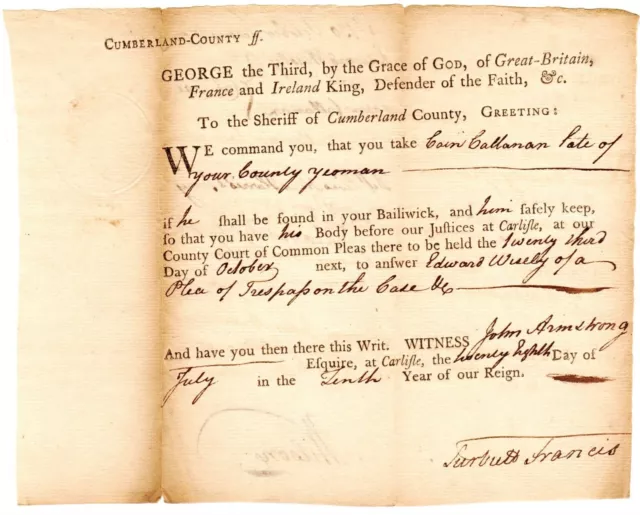 CUMBERLAND-COUNTY ſſ.
GEORGE the Third, by the Grace of GOD, of Great-Britain,
France and Ireland King, Defender of the Faith, &c.
To the Sheriff of Cumberland County, GREETING:
WE command you, that you take Cain Callanan late of
your County yeoman
if he ſhall be found in your Bailiwick, and him ſafely keep,
ſo that you have his Body before our Juſtices at Carliſle, at our
County Court of Common Pleas there to be held the twenty third
Day of October next, to anſwer Edward Wisely of a
Plea of Treſpaſs on the Case &c
And have you then there this Writ. WITNESS John Armstrong
Eſquire, at Carliſle, the twenty Eighth Day of
July in the Tenth Year of our Reign.
Turbutt Francis